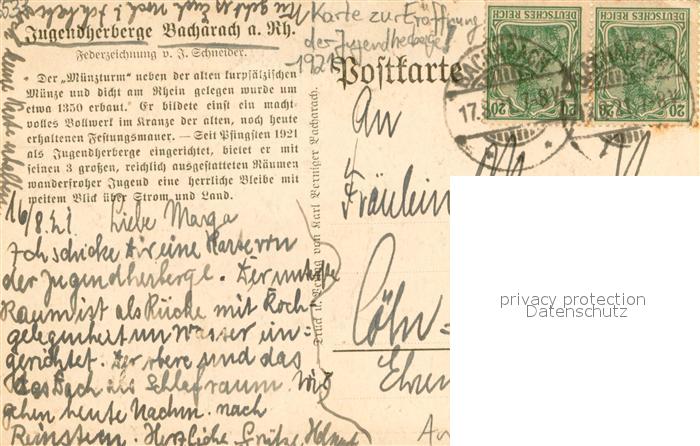 Jugendherberge Bacharach a. Rh.
Federzeichnung v. F. J. Schneider.
• Der „Münzturm“ neben der alten kurpfälzischen
Münze und dicht am Rhein gelegen wurde um
etwa 1350 erbaut. Er bildete einst ein macht-
volles Bollwerk im Kranze der alten, noch heute
erhaltenen Festungsmauer. — Seit Pfingsten 1921
als Jugendherberge eingerichtet, bietet er mit
seinen 3 großen, reichlich ausgestatteten Räumen
wanderfroher Jugend eine herrliche Bleibe mit
weitem Blick über Strom und Land.
16/8.21 Liebe Marga
Ich schicke Dir eine Karte von
der Jugendherberge. Der unterste
Raum ist als Kücke mit Koch-
gelegenheit und Wasser ein-
gerichtet. Der obere und das
Dach als Schlafraum. Wir
gehen heute Nachm. nach
Rheinstein. Herzliche Grüße Helmut
Druck u. Verlag von Karl Berniger Bacharach.
Karte zur Eröffnung
der Jugendherberge
1921
Postkarte
DEUTSCHES REICH
20 20
DEUTSCHES REICH
20 20
BACHARACH
17.
An
Fräulein
Cöln-
Ehren
privacy protection
Datenschutz